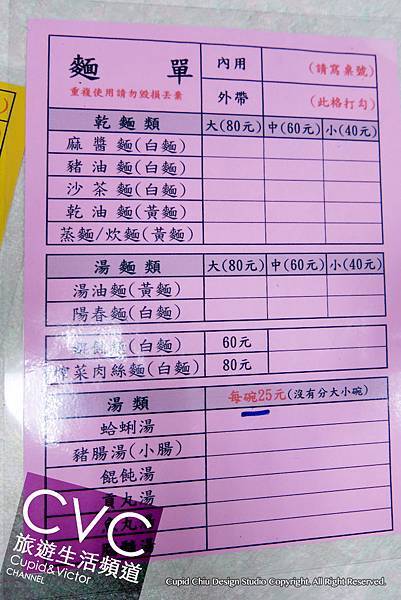 麵 單
重複使用請勿毀損丟棄
內用 (請寫桌號)
外帶 (此格打勾)
乾麵類 大(80元) 中(60元) 小(40元)
麻醬麵(白麵)
豬油麵(白麵)
沙茶麵(白麵)
乾油麵(黃麵)
蒸麵/炊麵(黃麵)
湯麵類 大(80元) 中(60元) 小(40元)
湯油麵(黃麵)
陽春麵(白麵)
餛飩麵(白麵) 60元
榨菜肉絲麵(白麵) 80元
湯類 每碗25元(沒有分大小碗)
蛤蜊湯
豬腸湯(小腸)
餛飩湯
貢丸湯
丸湯
湯
CVC
旅遊生活頻道
Cupid&Victor
CHANNEL
Cupid Chiu Design Studio Copyright. All Right Reserved.